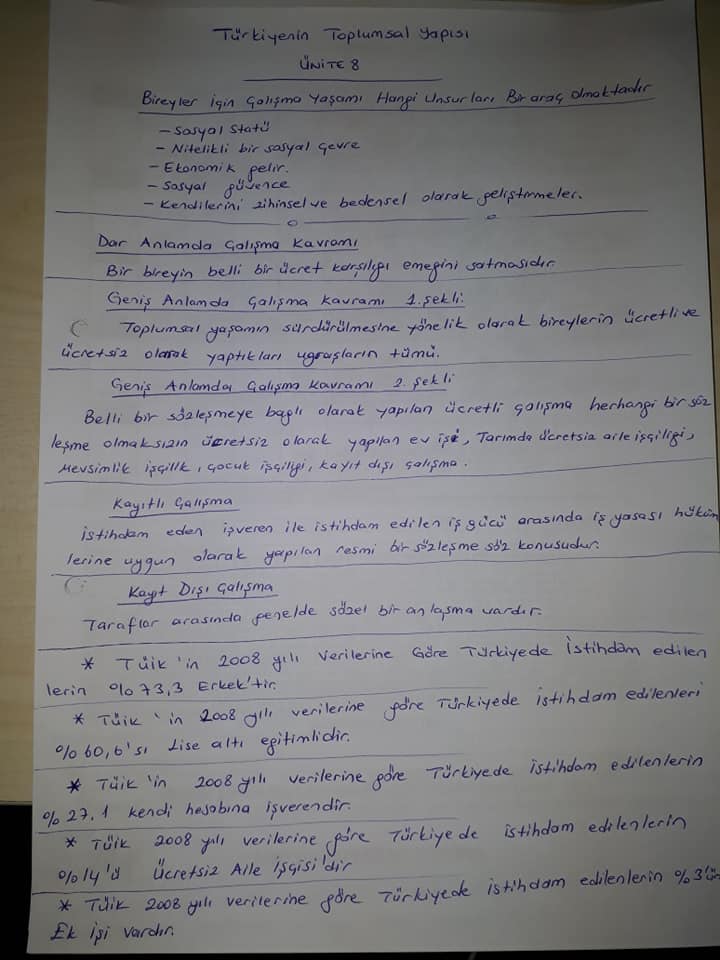 Türkiyenin Toplumsal Yapısı
ÜNİTE 8
Bireyler için Çalışma Yaşamı Hangi Unsurları Bir araç olmaktadır
- Sosyal statü
- Nitelikli bir sosyal çevre
- Ekonomik gelir.
- Sosyal güvence
- Kendilerini zihinsel ve bedensel olarak geliştirmeler.
Dar Anlamda Çalışma Kavramı
Bir bireyin belli bir ücret karşılığı emeğini satmasıdır.
Geniş Anlamda Çalışma Kavramı 1. şekli:
Toplumsal yaşamın sürdürülmesine yönelik olarak bireylerin ücretli ve
ücretsiz olarak yaptıkları uğraşların tümü.
Geniş Anlamda Çalışma Kavramı 2. şekli
Belli bir sözleşmeye bağlı olarak yapılan ücretli çalışma herhangi bir söz
leşme olmaksızın ücretsiz olarak yapılan ev işi, Tarımda ücretsiz aile işçiliği,
Mevsimlik işçilik, çocuk işçiliği, kayıt dışı çalışma.
Kayıtlı Çalışma
İstihdam eden işveren ile istihdam edilen iş gücü arasında iş yasası hüküm
lerine uygun olarak yapılan resmi bir sözleşme söz konusudur.
Kayıt Dışı Çalışma
Taraflar arasında genelde sözel bir anlaşma vardır.
* Tüik 'in 2008 yılı Verilerine Göre Türkiyede İstihdam edilen
lerin %73,3 Erkek'tir.
* Tüik 'in 2008 yılı verilerine göre Türkiyede istihdam edilenleri
%60,6'sı Lise altı eğitimlidir.
* Tüik 'in 2008 yılı verilerine göre Türkiyede istihdam edilenlerin
%27.1 kendi hesabına işverendir.
* Tüik 2008 yılı verilerine göre Türkiyede istihdam edilenlerin
%14'ü Ücretsiz Aile İşçisi'dir
* Tüik 2008 yılı verilerine göre Türkiyede istihdam edilenlerin %3'ün
Ek işi vardır.